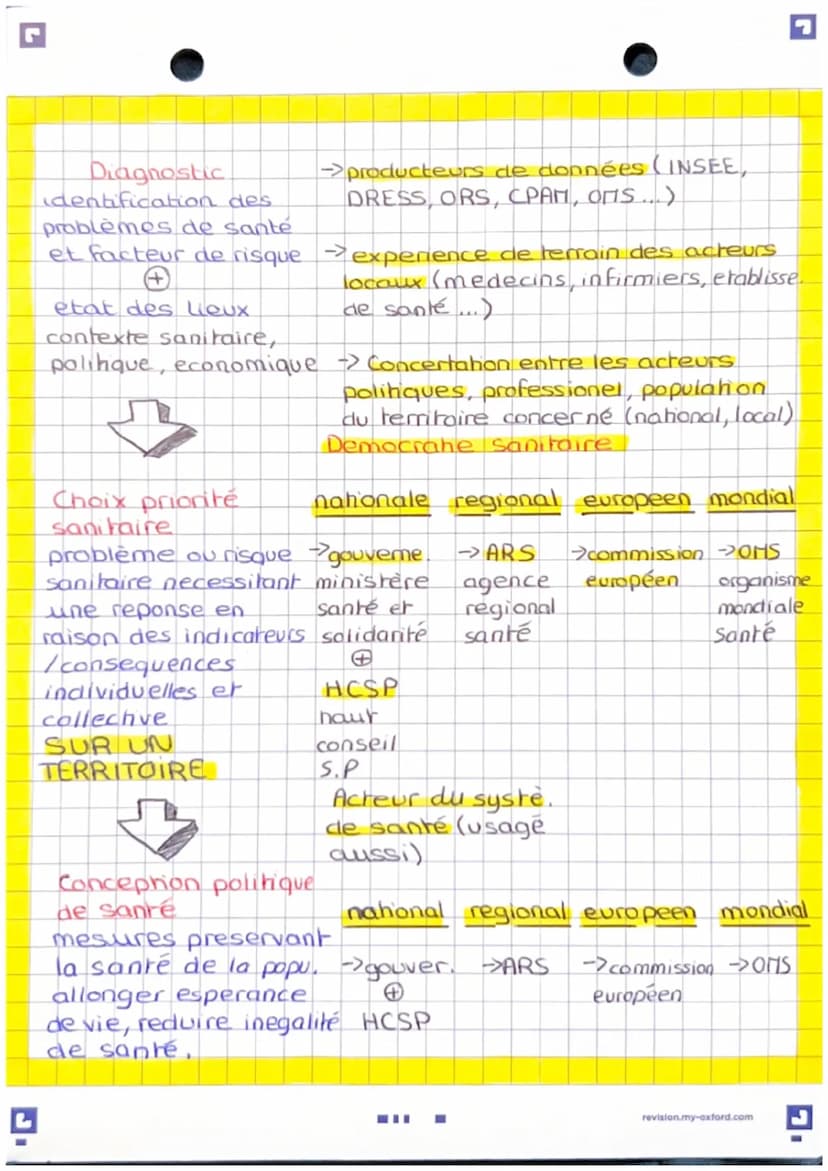 Diagnostic
identification des
problèmes de santé
et facteur de risque
+
etat des lieux
contexte sanitaire,
politique, economique
→ producteurs de données (INSEE,
DRESS, ORS, CPAM, OMS...)
→ experience de terrain des acteurs
locaux (medecins, infirmiers, etablisse.
de santé ...)
→ Concertation entre les acteurs
politiques, professionel, population
du territoire concerné (national, local)
Democratie sanitaire
Choix priorité
sanitaire
problème ou risque
sanitaire necessitant
une reponse en
raison des indicateurs
/consequences
individuelles et
collective
SUR UN
TERRITOIRE
nationale
→ gouverne.
ministère
santé et
solidarité
+
HCSP
haut
conseil
S.P
Acteur du systè.
de santé (usagé
aussi)
regional
→ ARS
agence
régional
santé
europeen
→ commission
européen
mondial
→ OMS
organisme
mondiale
santé
Conception politique
de santé
mesures preservant
la santé de la popu.
allonger esperance
de vie, reduire inegalité
de santé.
national
→ gouver.
+
HCSP
regional
→ ARS
europeen
→ commission
européen
mondial
→ OMS
revision.my-oxford.com